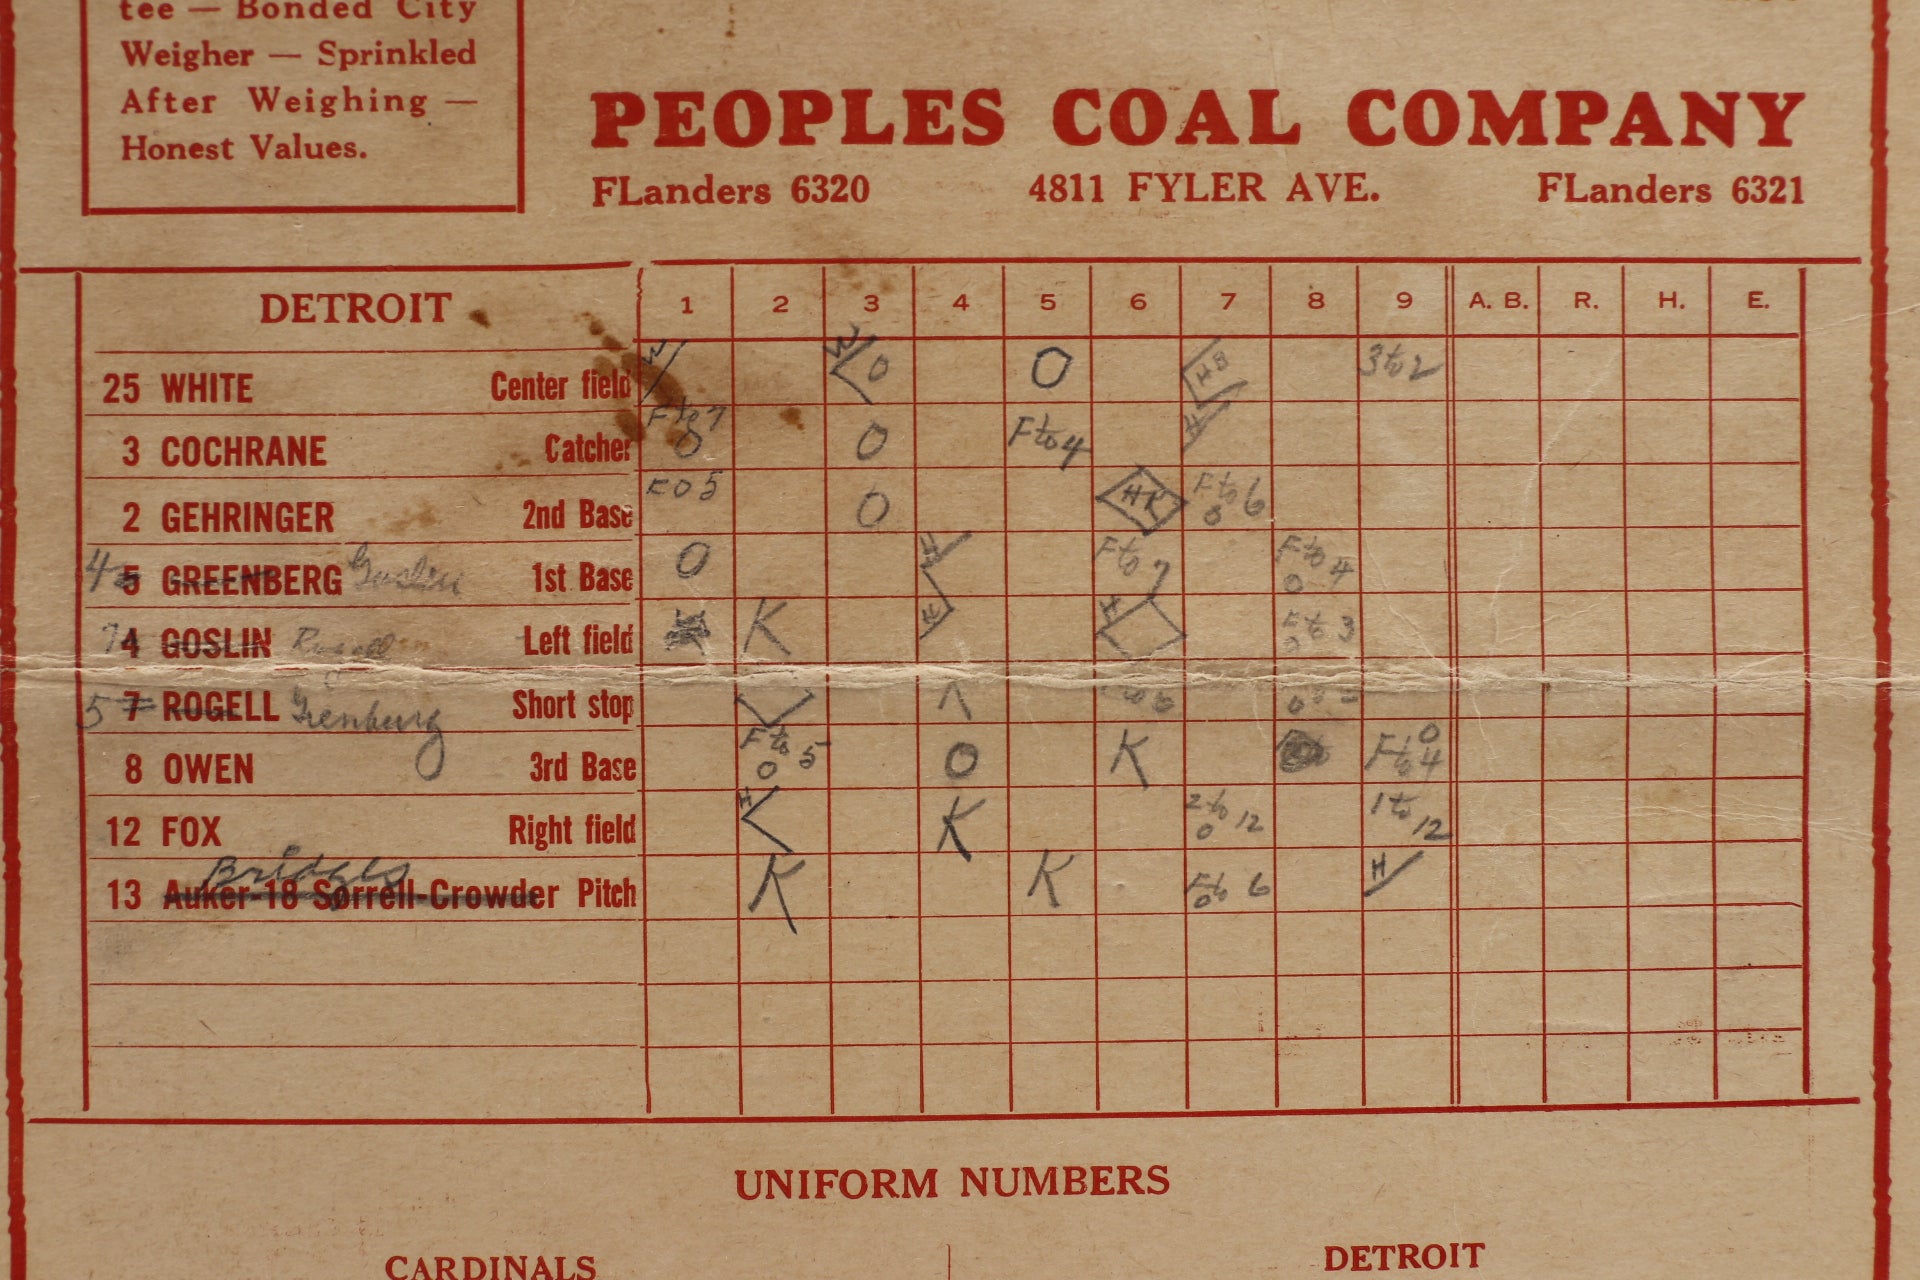 tee — Bonded City
Weigher — Sprinkled
After Weighing —
Honest Values.
PEOPLES COAL COMPANY
FLanders 6320 4811 FYLER AVE. FLanders 6321
DETROIT 1 2 3 4 5 6 7 8 9 A. B. R. H. E.
25 WHITE Center field W W O O HB 3 to 2
3 COCHRANE Catcher F to 7 O O F to 4 H
2 GEHRINGER 2nd Base FO 5 O HR F to 6 O
4 5 GREENBERG Goslin 1st Base O H F to 7 F to 4 O
7 4 GOSLIN Rogell Left field K H H F to 3 O
5 7 ROGELL Grenburg Short stop
8 OWEN 3rd Base F to 5 O O K F to 4 O
12 FOX Right field H K 2 to 12 O 1 to 12
Bridges
13 Auker-18 Sorrell-Crowder Pitch K K F to 6 O H
UNIFORM NUMBERS
CARDINALS DETROIT